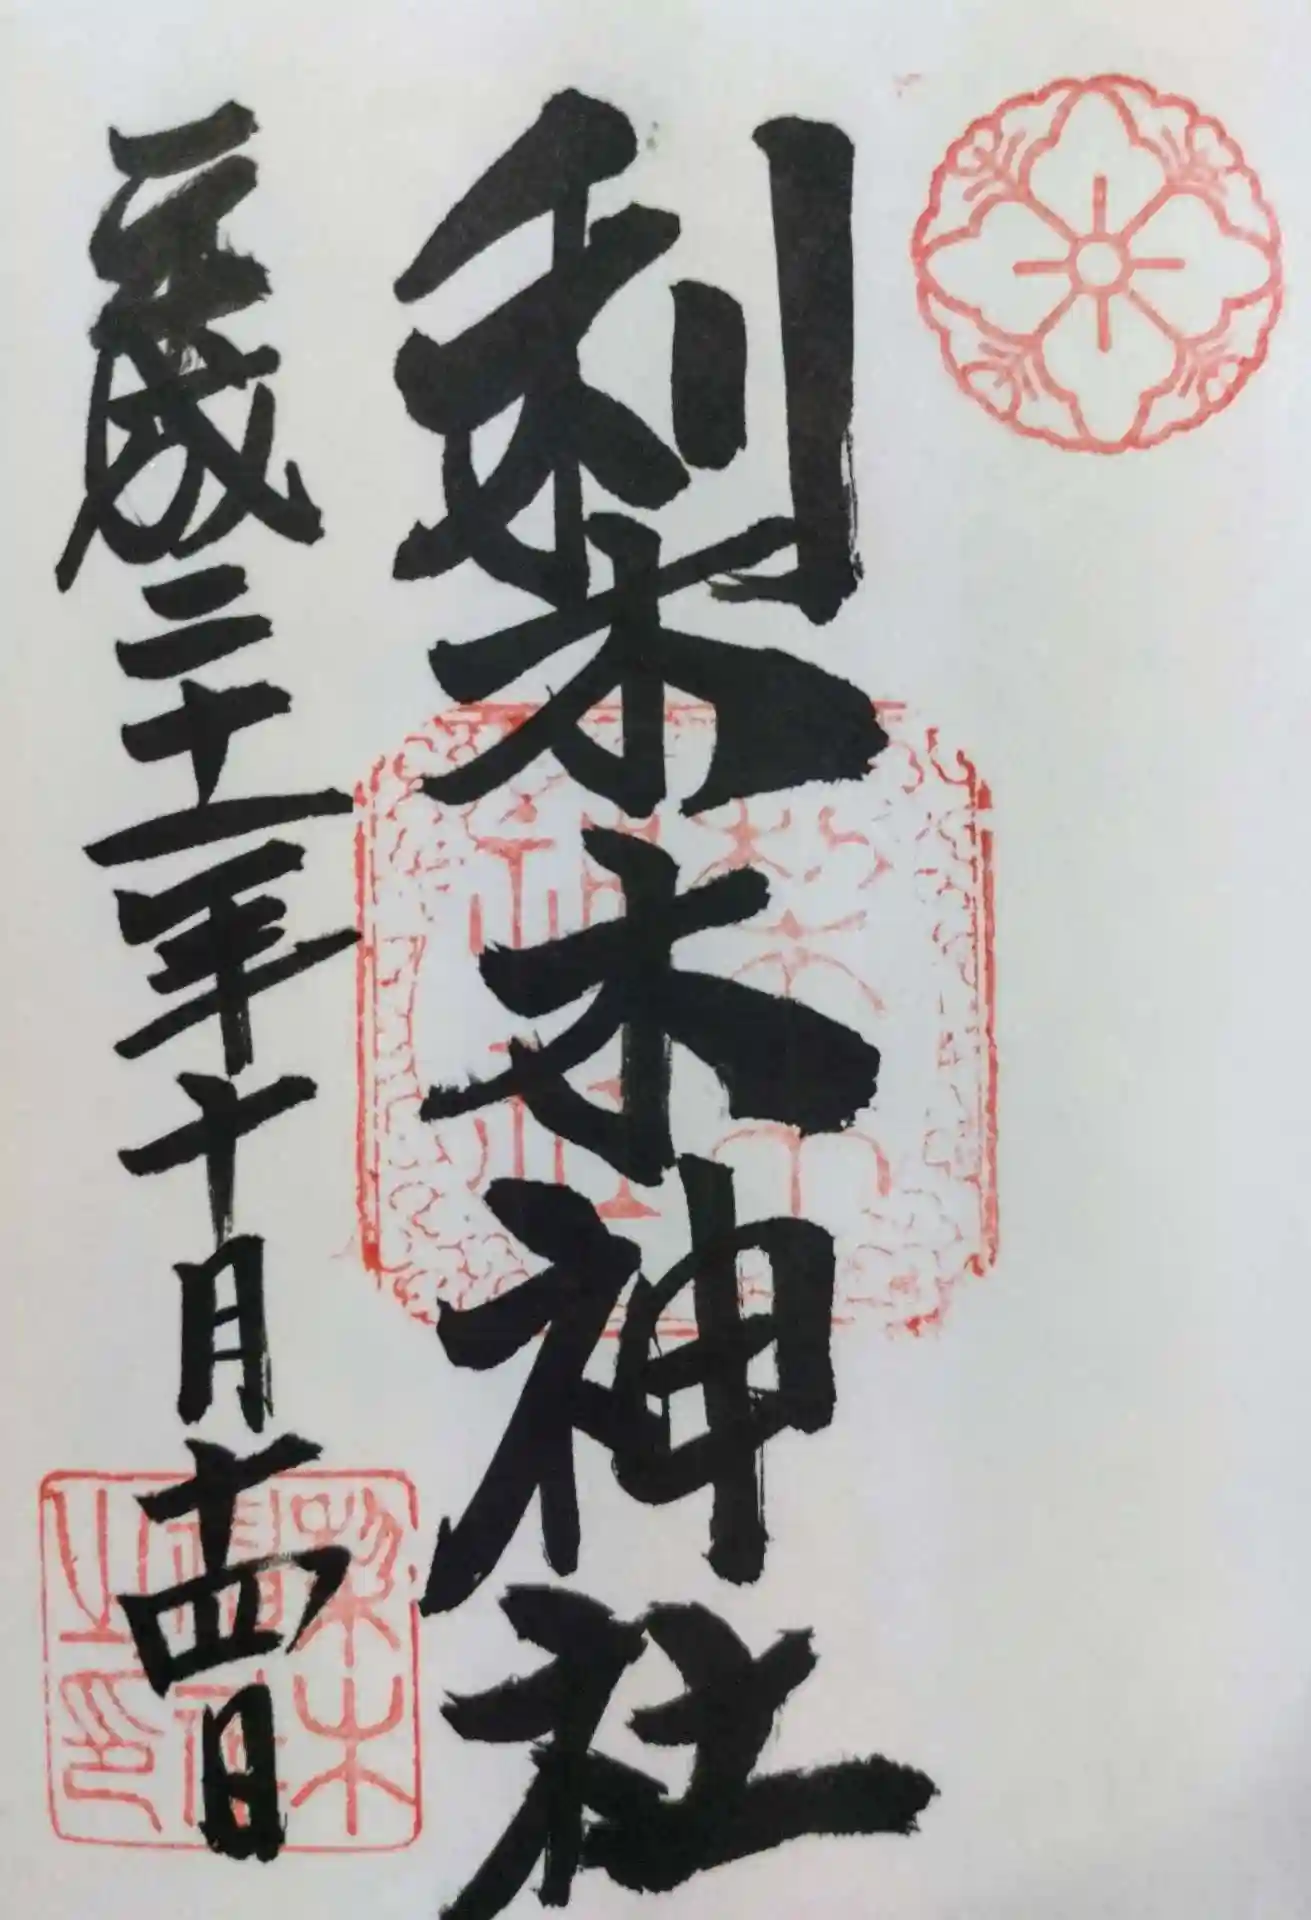 梨木神社
平成二十一年十月十四日
梨木
神社
梨木
之印